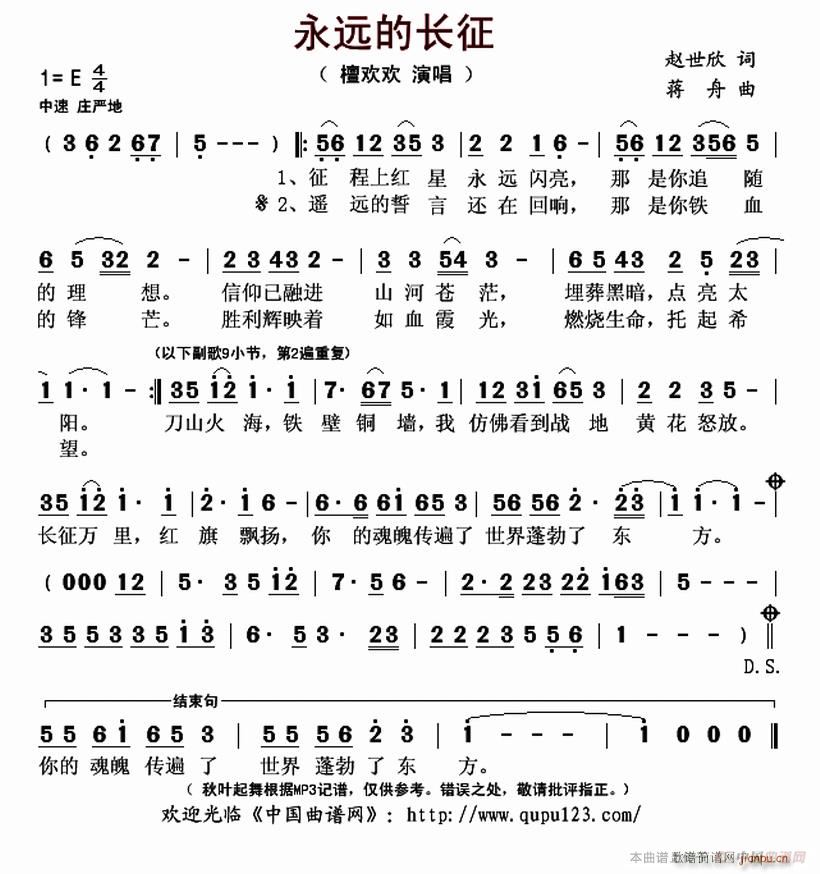 永远的长征
( 檀欢欢 演唱 )
赵世欣 词
蒋 舟 曲
1= E 4/4
中速 庄严地
( 3 6 2 67 | 5 - - - ) ‖: 56 12 35 3 | 2 2 1 6 - | 56 12 356 5 |
1、征 程上红 星 永 远 闪亮， 那 是你追 随
2、遥 远的誓 言 还 在 回响， 那 是你铁 血
6 5 32 2 - | 2 3 43 2 - | 3 3 54 3 - | 6 5 43 2 5 23 |
的 理 想。 信仰已融进 山 河 苍 茫， 埋葬黑暗，点 亮 太
的 锋 芒。 胜利辉映着 如 血 霞 光， 燃烧生命，托 起 希
(以下副歌9小节，第2遍重复)
1 1· 1 - :‖ 35 12 1· 1 | 7· 67 5· 1 | 12 31 65 3 | 2 2 3 5 - |
阳。 刀山火 海，铁 壁 铜 墙，我 仿佛看到战 地 黄 花 怒放。
望。
35 12 1· 1 | 2· 1 6 - | 6· 6 61 65 3 | 56 56 2· 23 1 | 1· 1 - |
长征万 里，红 旗 飘扬， 你 的魂魄传遍了 世界蓬勃了 东 方。
( 000 12 | 5· 3 5 12 | 7· 5 6 - | 2· 2 23 22 163 | 5 - - - |
3 5 5 3 3 5 1 3 | 6· 5 3· 23 | 2 2 2 3 5 5 6 | 1 - - - ) ‖
D.S.
结束句
5 5 6 1 6 5 3 | 5 5 5 6 2 3 | 1 - - - | 1 0 0 0 ‖
你的 魂魄 传遍 了 世界 蓬勃 了 东 方。
( 秋叶起舞根据MP3记谱，仅供参考。错误之处，敬请批评指正。)
欢迎光临《中国曲谱网》：http://www.qupu123.com/